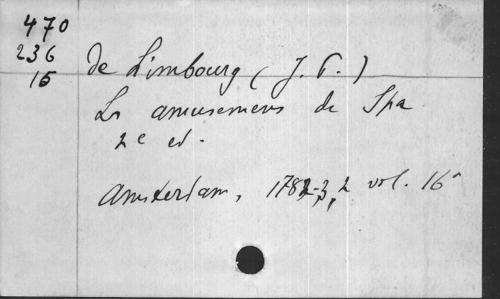 470
236
15
de Limbourg (J. P.)
Ls amusemens de Spa
2e ed.
Amsterdam, 1782-3, 2 vol. 16°